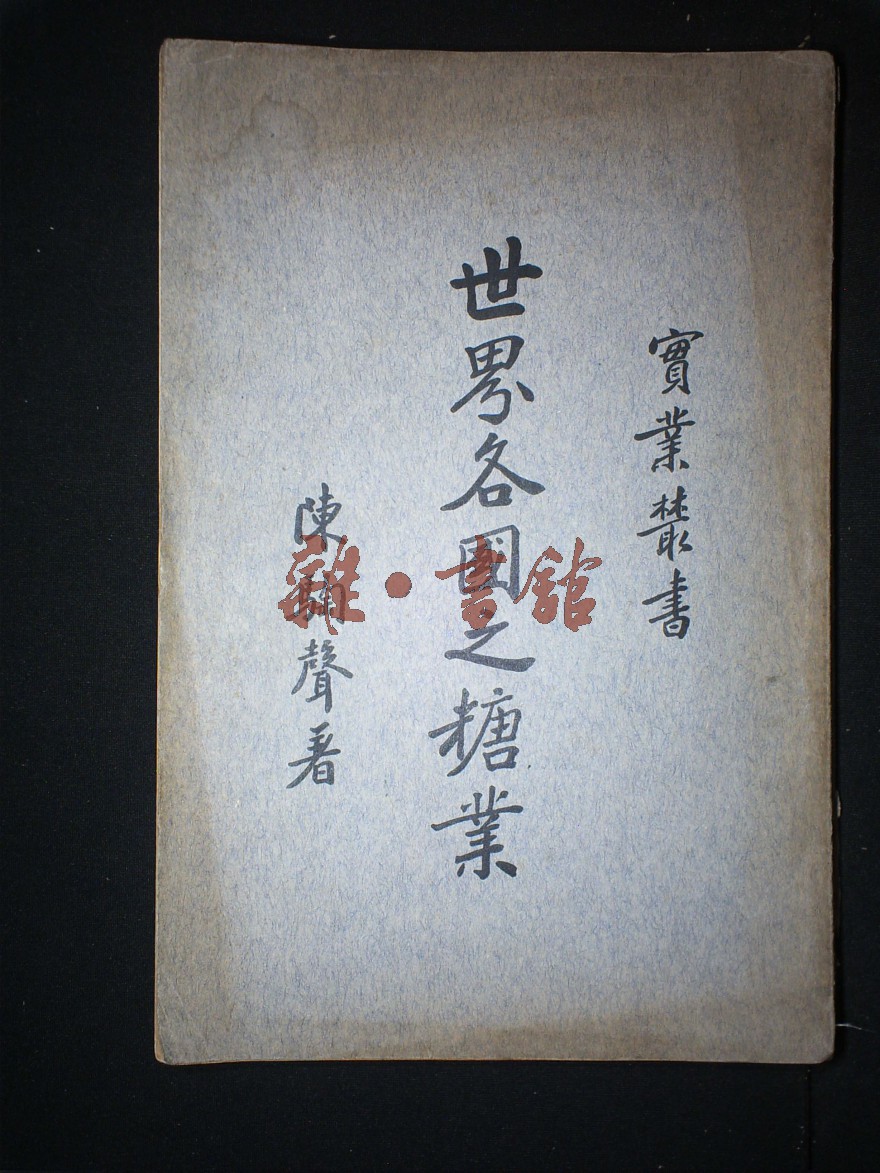 實業叢書
世界各國之糖業
陳騊聲著
雜·書館